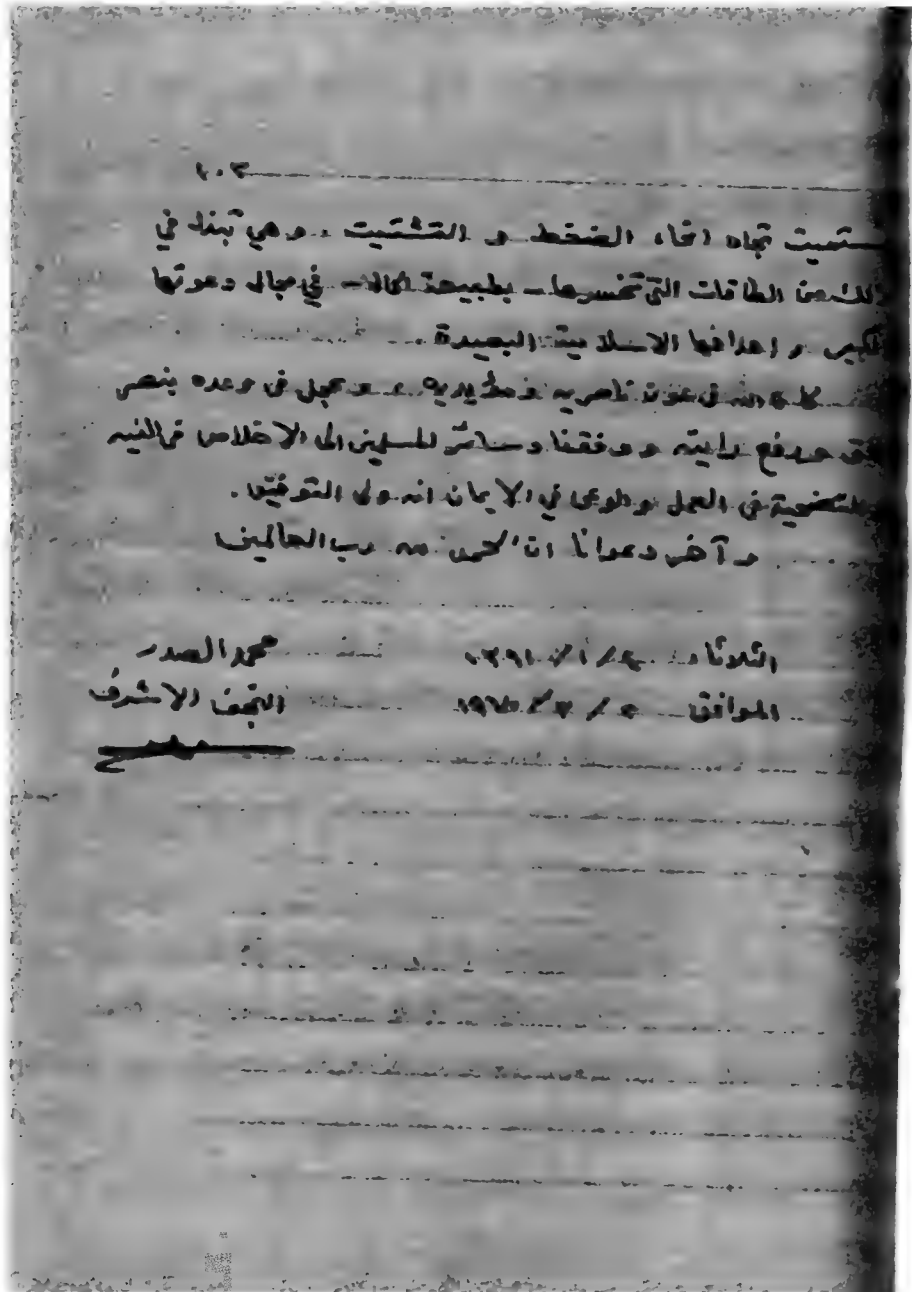 ١٠٢
تجاه انحاء الضغط و التشتيت ، و هي تبذل في
الطاقات التي تخسرها - بطبيعة الحال - في مجال دعوتها
و اهدافها الاسلامية البعيدة
كان الله في عون ناصريه و مؤيديه و عجل في وعده بنصر
و رفع رايته و وفقنا و سائر المسلمين الى الاخلاص في النيه
في العمل و الوعي في الايمان انه ولي التوفيق .
و آخر دعوانا ان الحمد لله رب العالمين
الثلاثاء محمد الصدر
الموافق النجف الاشرف